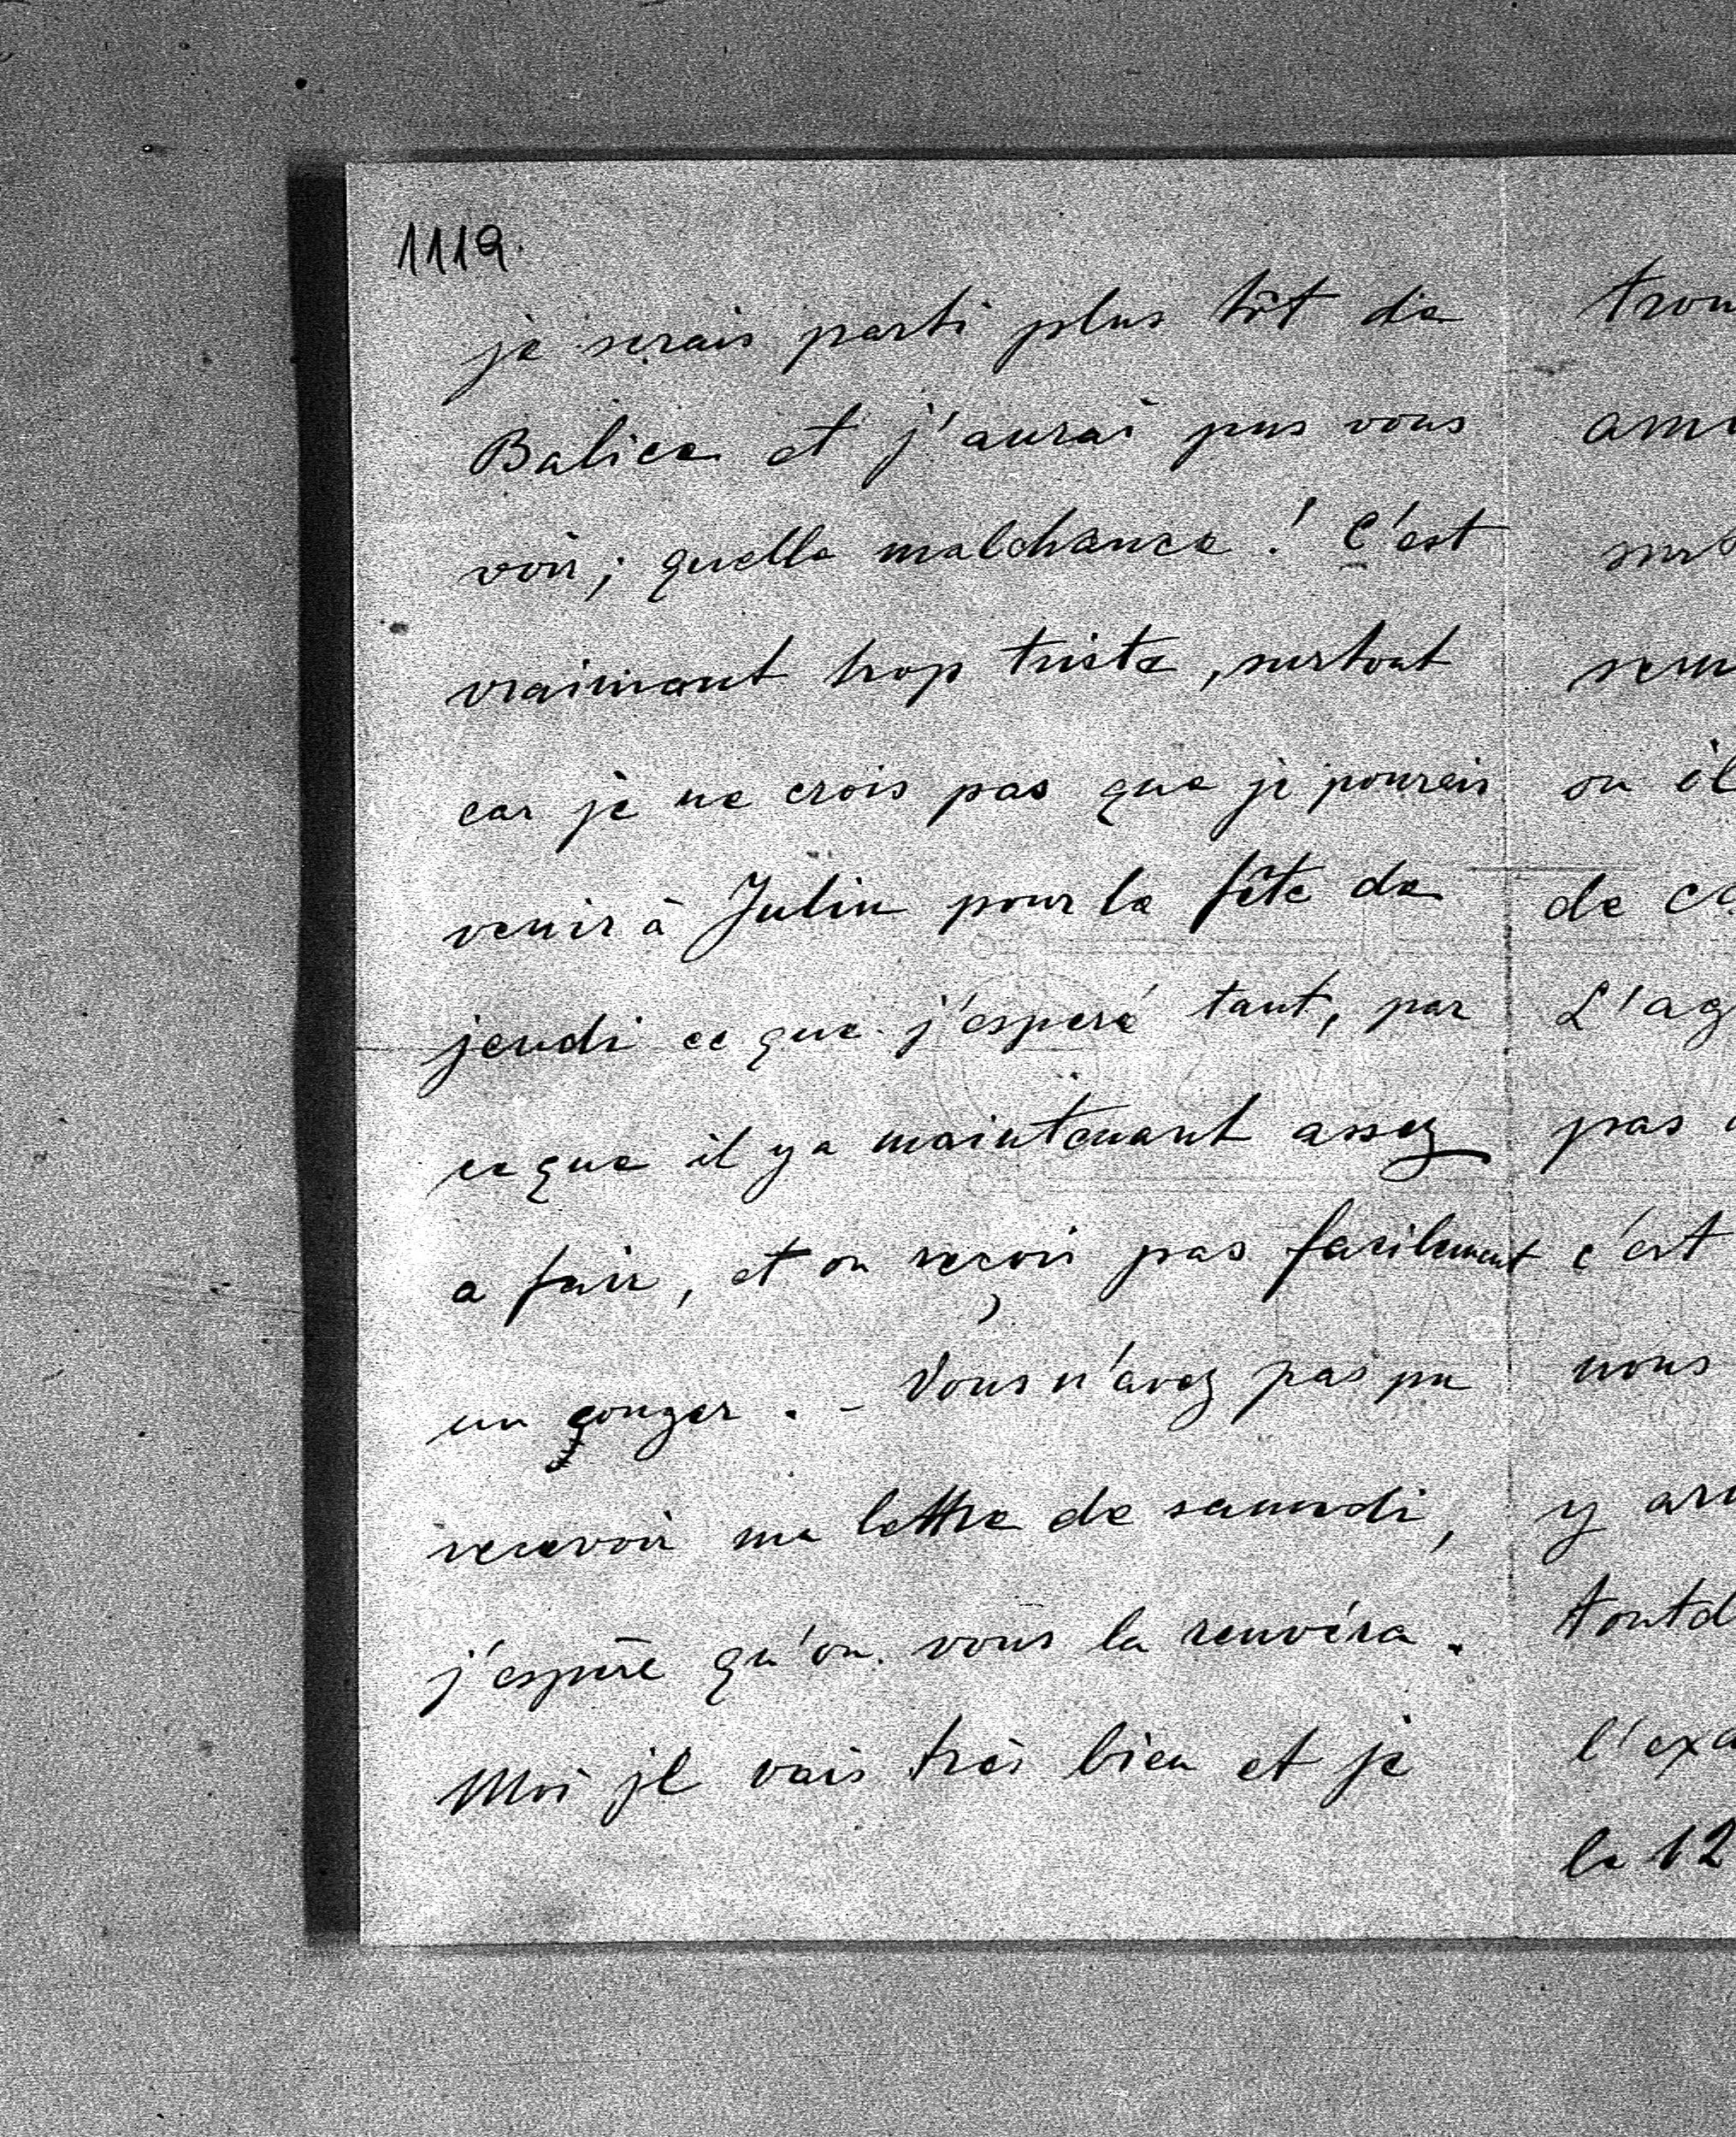 1112.
je serais parti plus tôt de
Balice et j'aurai pus vous
voir; quelle malchance! C'est
vraimant trop triste, surtout
car je ne crois pas que je pourais
venir à Julin pour la fête de
jeudi ce que j'esperé tant, par
ce que il y a maintenant assez
a fair, et on reçoir pas facilement
un çonger. - Vous n'avez pas pu
recevoir ma lettre de samedi,
j'espère qu'on vous la renvéra.
Moi je vais très bien et je
trou
ami
surt
sem
ou il
de ce
L'ag
pas
c'est
nous
y arr
tout d
l'exa
le 12